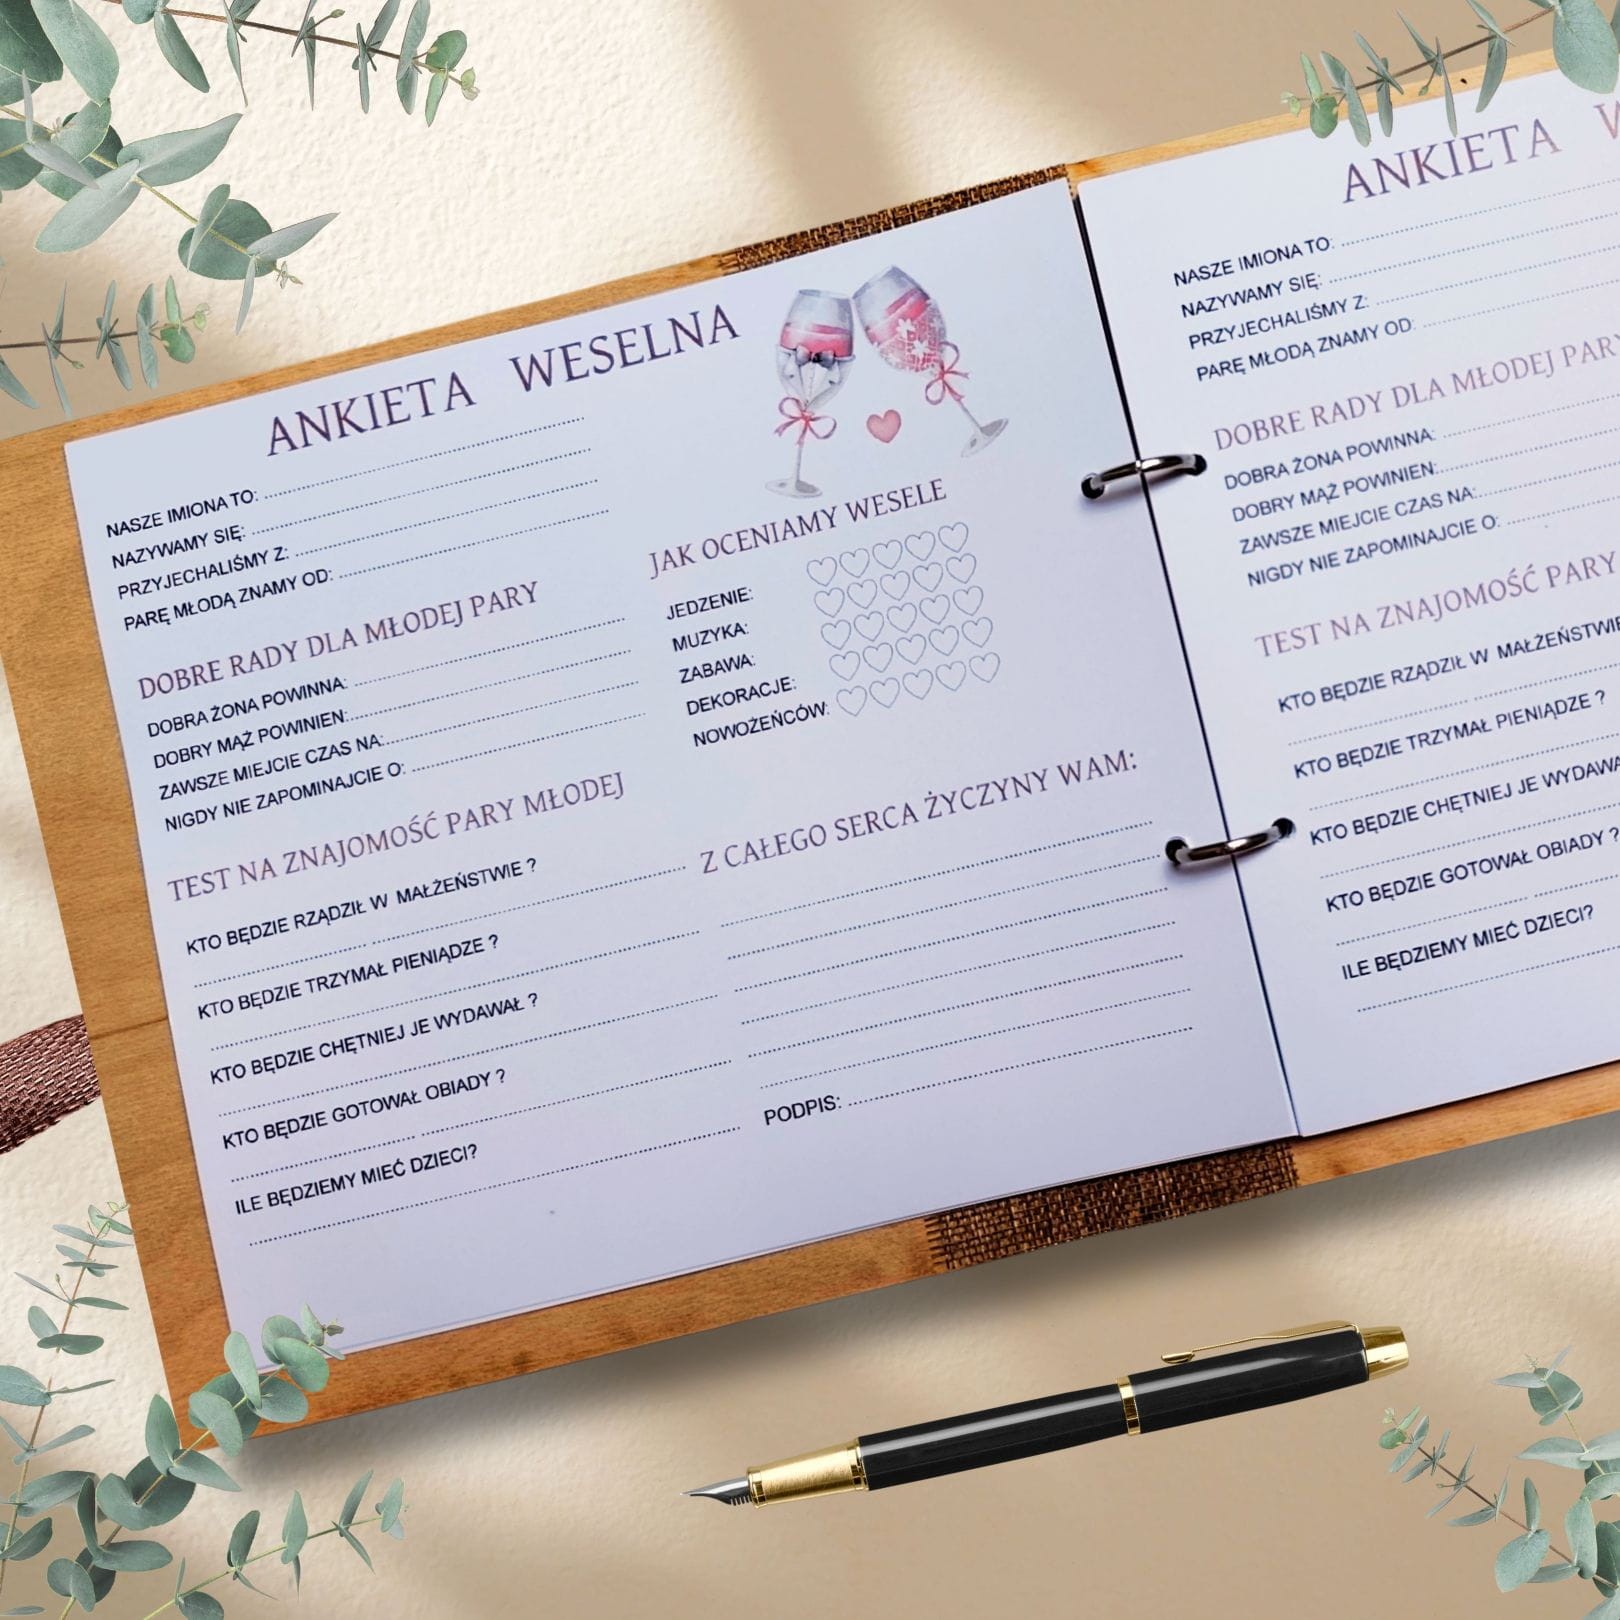 ANKIETA WESELNA
NASZE IMIONA TO:
NAZYWAMY SIĘ:
PRZYJECHALIŚMY Z:
PARĘ MŁODĄ ZNAMY OD:
DOBRE RADY DLA MŁODEJ PARY
DOBRA ŻONA POWINNA:
DOBRY MĄŻ POWINIEN:
ZAWSZE MIEJCIE CZAS NA:
NIGDY NIE ZAPOMINAJCIE O:
TEST NA ZNAJOMOŚĆ PARY MŁODEJ
KTO BĘDZIE RZĄDZIŁ W MAŁŻEŃSTWIE ?
KTO BĘDZIE TRZYMAŁ PIENIĄDZE ?
KTO BĘDZIE CHĘTNIEJ JE WYDAWAŁ ?
KTO BĘDZIE GOTOWAŁ OBIADY ?
ILE BĘDZIEMY MIEĆ DZIECI?
JAK OCENIAMY WESELE
JEDZENIE:
MUZYKA:
ZABAWA:
DEKORACJE:
NOWOŻEŃCÓW:
Z CAŁEGO SERCA ŻYCZYNY WAM:
PODPIS:
ANKIETA
NASZE IMIONA TO:
NAZYWAMY SIĘ:
PRZYJECHALIŚMY Z:
PARĘ MŁODĄ ZNAMY OD:
DOBRE RADY DLA MŁODEJ PARY
DOBRA ŻONA POWINNA:
DOBRY MĄŻ POWINIEN:
ZAWSZE MIEJCIE CZAS NA:
NIGDY NIE ZAPOMINAJCIE O:
TEST NA ZNAJOMOŚĆ PARY
KTO BĘDZIE RZĄDZIŁ W MAŁŻEŃSTWIE
KTO BĘDZIE TRZYMAŁ PIENIĄDZE ?
KTO BĘDZIE CHĘTNIEJ JE WYDAWA
KTO BĘDZIE GOTOWAŁ OBIADY ?
ILE BĘDZIEMY MIEĆ DZIECI?